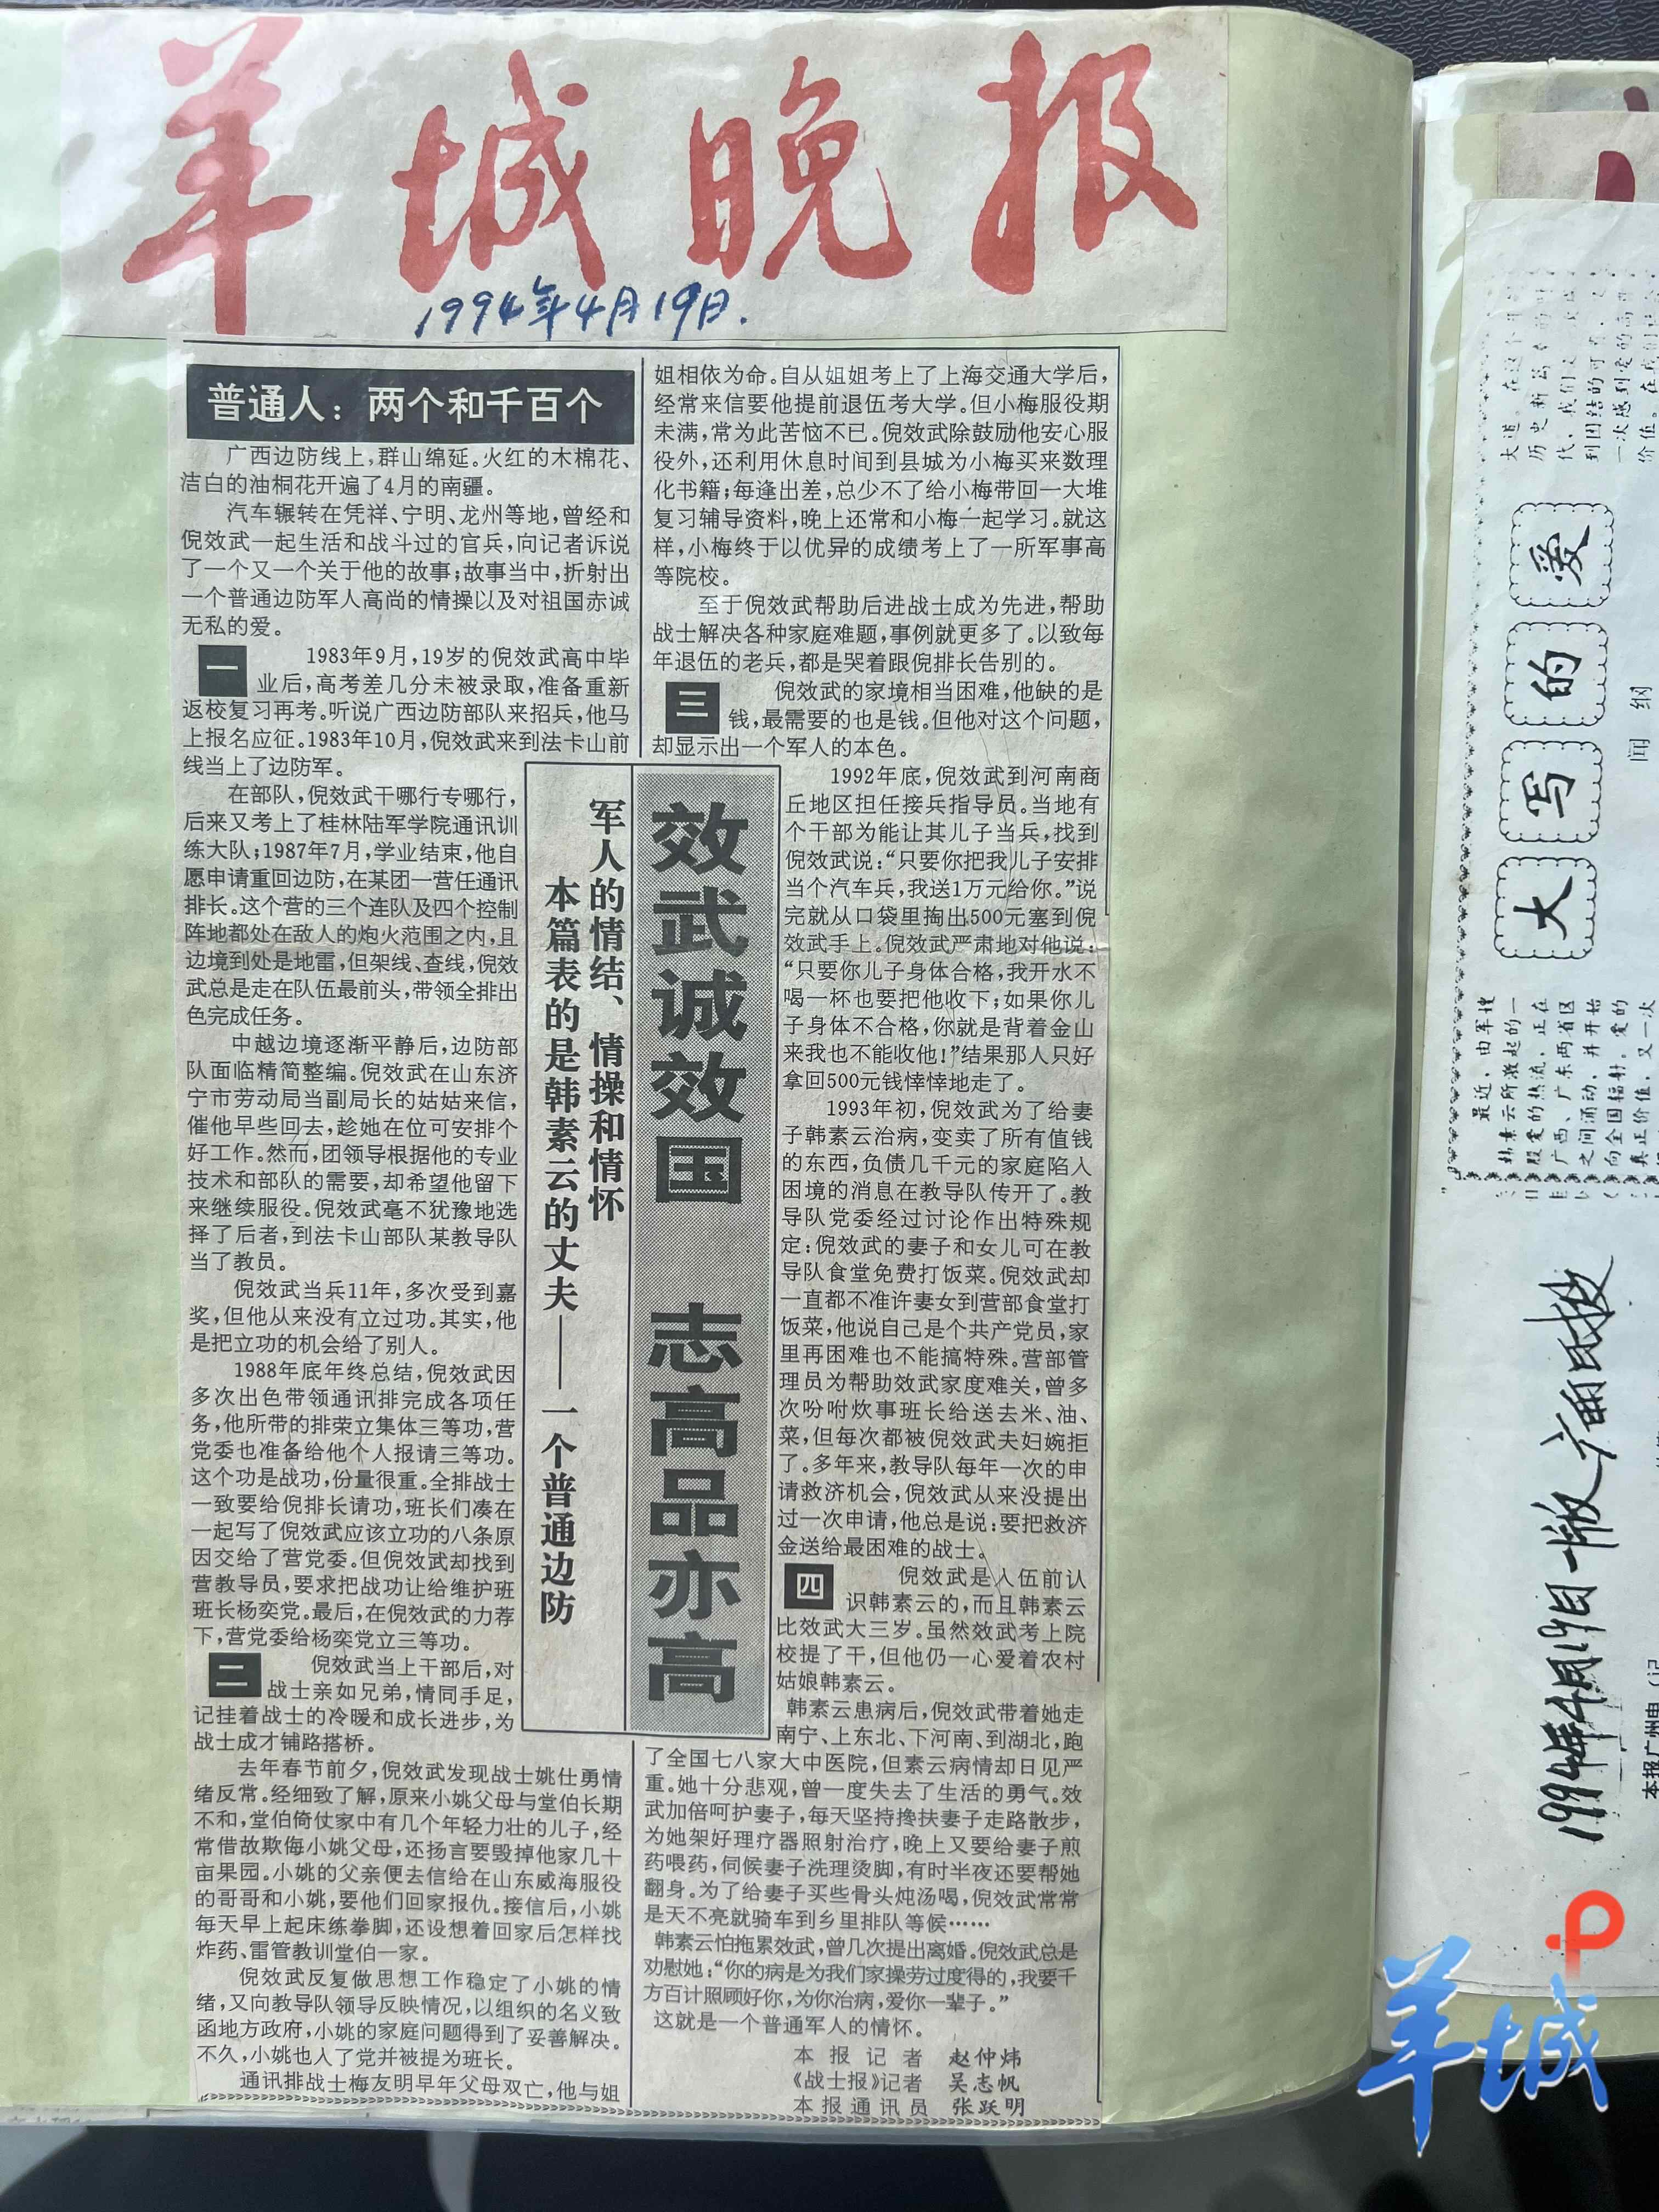 羊城晚报
1994年4月19日.
普通人：两个和千百个
广西边防线上，群山绵延。火红的木棉花、
洁白的油桐花开遍了4月的南疆。
汽车辗转在凭祥、宁明、龙州等地，曾经和
倪效武一起生活和战斗过的官兵，向记者诉说
了一个又一个关于他的故事；故事当中，折射出
一个普通边防军人高尚的情操以及对祖国赤诚
无私的爱。
一
1983年9月，19岁的倪效武高中毕
业后，高考差几分未被录取，准备重新
返校复习再考。听说广西边防部队来招兵，他马
上报名应征。1983年10月，倪效武来到法卡山前
线当上了边防军。
在部队，倪效武干哪行专哪行，
后来又考上了桂林陆军学院通讯训
练大队；1987年7月，学业结束，他自
愿申请重回边防，在某团一营任通讯
排长。这个营的三个连队及四个控制
阵地都处在敌人的炮火范围之内，且
边境到处是地雷，但架线、查线，倪效
武总是走在队伍最前头，带领全排出
色完成任务。
中越边境逐渐平静后，边防部
队面临精简整编。倪效武在山东济
宁市劳动局当副局长的姑姑来信，
催他早些回去，趁她在位可安排个
好工作。然而，团领导根据他的专业
技术和部队的需要，却希望他留下
来继续服役。倪效武毫不犹豫地选
择了后者，到法卡山部队某教导队
当了教员。
倪效武当兵11年，多次受到嘉
奖，但他从来没有立过功。其实，他
是把立功的机会给了别人。
1988年底年终总结，倪效武因
多次出色带领通讯排完成各项任
务，他所带的排荣立集体三等功，营
党委也准备给他个人报请三等功。
这个功是战功，份量很重。全排战士
一致要给倪排长请功，班长们凑在
一起写了倪效武应该立功的八条原
因交给了营党委。但倪效武却找到
营教导员，要求把战功让给维护班
班长杨奕党。最后，在倪效武的力荐
下，营党委给杨奕党立三等功。
二
倪效武当上干部后，对
战士亲如兄弟，情同手足，
记挂着战士的冷暖和成长进步，为
战士成才铺路搭桥。
去年春节前夕，倪效武发现战士姚仕勇情
绪反常。经细致了解，原来小姚父母与堂伯长期
不和，堂伯倚仗家中有几个年轻力壮的儿子，经
常借故欺侮小姚父母，还扬言要毁掉他家几十
亩果园。小姚的父亲便去信给在山东威海服役
的哥哥和小姚，要他们回家报仇。接信后，小姚
每天早上起床练拳脚，还设想着回家后怎样找
炸药、雷管教训堂伯一家。
倪效武反复做思想工作稳定了小姚的情
绪，又向教导队领导反映情况，以组织的名义致
函地方政府，小姚的家庭问题得到了妥善解决。
不久，小姚也入了党并被提为班长。
通讯排战士梅友明早年父母双亡，他与姐
姐相依为命。自从姐姐考上了上海交通大学后，
经常来信要他提前退伍考大学。但小梅服役期
未满，常为此苦恼不已。倪效武除鼓励他安心服
役外，还利用休息时间到县城为小梅买来数理
化书籍；每逢出差，总少不了给小梅带回一大堆
复习辅导资料，晚上还常和小梅一起学习。就这
样，小梅终于以优异的成绩考上了一所军事高
等院校。
至于倪效武帮助后进战士成为先进，帮助
战士解决各种家庭难题，事例就更多了。以致每
年退伍的老兵，都是哭着跟倪排长告别的。
三
倪效武的家境相当困难，他缺的是
钱，最需要的也是钱。但他对这个问题，
却显示出一个军人的本色。
效武诚效国 志高品亦高
军人的情结、情操和情怀
本篇表的是韩素云的丈夫——一个普通边防
1992年底，倪效武到河南商
丘地区担任接兵指导员。当地有
个干部为能让其儿子当兵，找到
倪效武说：“只要你把我儿子安排
当个汽车兵，我送1万元给你。”说
完就从口袋里掏出500元塞到倪
效武手上。倪效武严肃地对他说：
“只要你儿子身体合格，我开水不
喝一杯也要把他收下；如果你儿
子身体不合格，你就是背着金山
来我也不能收他！”结果那人只好
拿回500元钱悻悻地走了。
1993年初，倪效武为了给妻
子韩素云治病，变卖了所有值钱
的东西，负债几千元的家庭陷入
困境的消息在教导队传开了。教
导队党委经过讨论作出特殊规
定：倪效武的妻子和女儿可在教
导队食堂免费打饭菜。倪效武却
一直都不准许妻女到营部食堂打
饭菜，他说自己是个共产党员，家
里再困难也不能搞特殊。营部管
理员为帮助效武家度难关，曾多
次吩咐炊事班长给送去米、油、
菜，但每次都被倪效武夫妇婉拒
了。多年来，教导队每年一次的申
请救济机会，倪效武从来没提出
过一次申请，他总是说：要把救济
金送给最困难的战士。
四
倪效武是入伍前认
识韩素云的，而且韩素云
比效武大三岁。虽然效武考上院
校提了干，但他仍一心爱着农村
姑娘韩素云。
韩素云患病后，倪效武带着她走
南宁、上东北、下河南、到湖北，跑
了全国七八家大中医院，但素云病情却日见严
重。她十分悲观，曾一度失去了生活的勇气。效
武加倍呵护妻子，每天坚持搀扶妻子走路散步，
为她架好理疗器照射治疗，晚上又要给妻子煎
药喂药，伺候妻子洗理烫脚，有时半夜还要帮她
翻身。为了给妻子买些骨头炖汤喝，倪效武常常
是天不亮就骑车到乡里排队等候……
韩素云怕拖累效武，曾几次提出离婚。倪效武总是
劝慰她：“你的病是为我们家操劳过度得的，我要千
方百计照顾好你，为你治病，爱你一辈子。”
这就是一个普通军人的情怀。
本报记者 赵仲炜
《战士报》记者 吴志帆
本报通讯员 张跃明
大写的爱
最近，由军嫂
韩素云所激起的一
股爱的热流，正在
广西、广东两省区
之间涌动，并开始
向全国辐射。爱的
真正价值，又一次
1994年4月19日一版
本报广州电（记
羊城